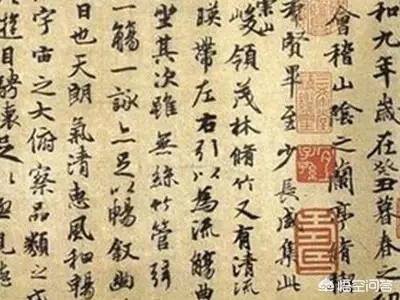 和九年歲在癸丑暮春之
會稽山陰之蘭亭脩禊
羣賢畢至少長咸集此
崇山
峻領茂林脩竹又有清流
暎帶左右引以為流觴曲
坐其次雖無絲竹管弦
一觴一詠亦足以暢敘幽
日也天朗氣清惠風和暢
宇宙之大俯察品類之
遊目騁懷足
悟空问答